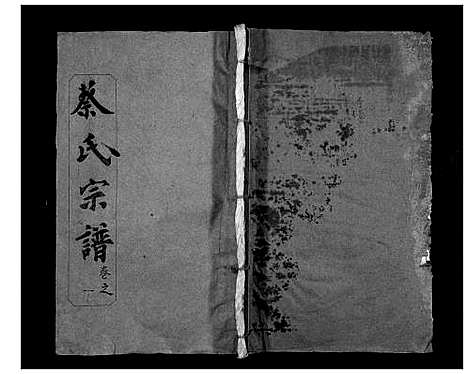 蔡氏宗譜
卷之一